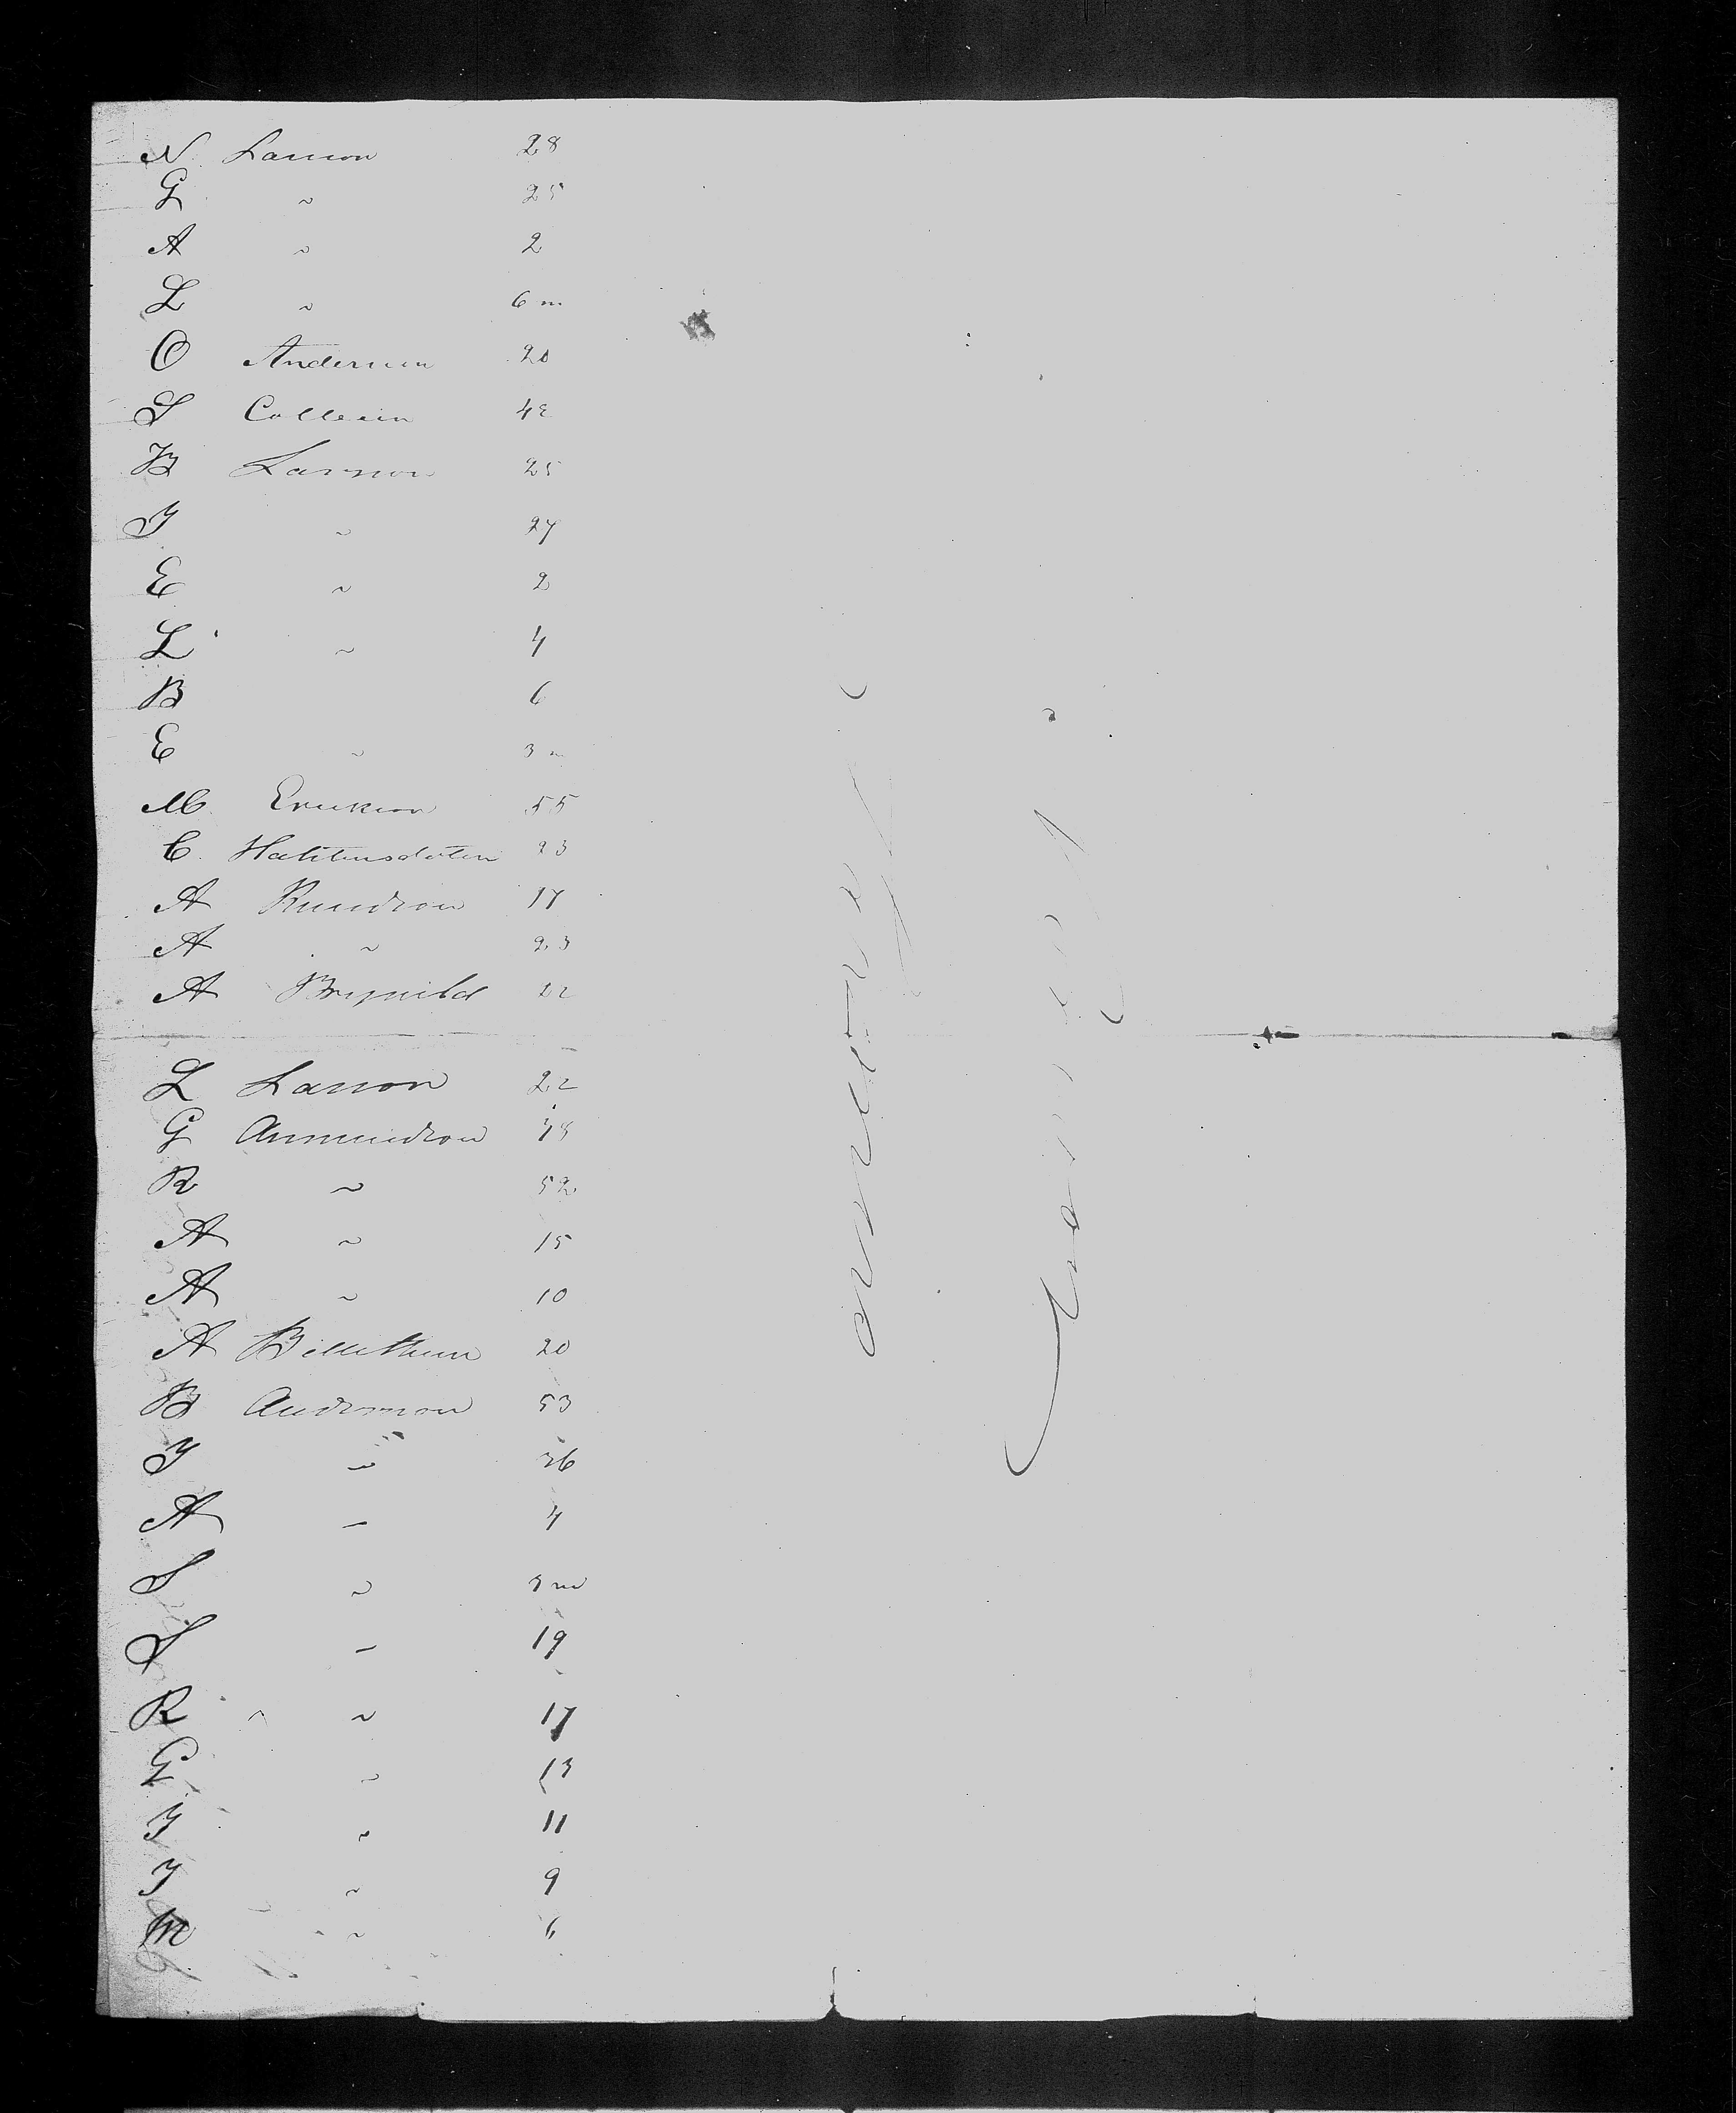 N. Larson 28
G " 25
A " 2
L " 6 m
O Anderson 20
S 42
B Larson 25
I " 27
E " 2
L " 4
B 6
E " 3 m
M. Erickson 55
C. 23
A Knudson 17
A " 23
A Brynild 22
L Larson 22
G Ammundson
R " 52
A " 15
A " 10
A 20
B Anderson 53
I " 36
A " 4
S "
S " 19
R " 17
G " 13
I " 11
I " 9
M " 6